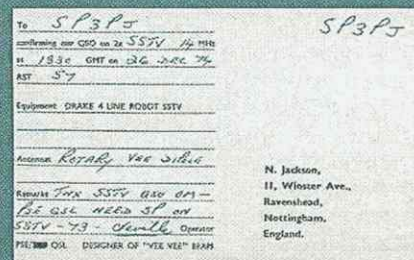 To SP3PJ
SP3PJ
confirming our QSO on 2x SSTV 14 MHz
at 1330 GMT on 26 DEC 74
RST 57
Equipment DRAKE 4 LINE ROBOT SSTV
Antenna ROTARY VEE
Remarks TNX SSTV QSO OM-
PSE QSL NEED SP ON
SSTV - 73 - Neville Operator
PSE QSL DESIGNER OF "VEE VEE" BEAM
N. Jackson,
11, Winster Ave.,
Ravenshead,
Nottingham,
England.